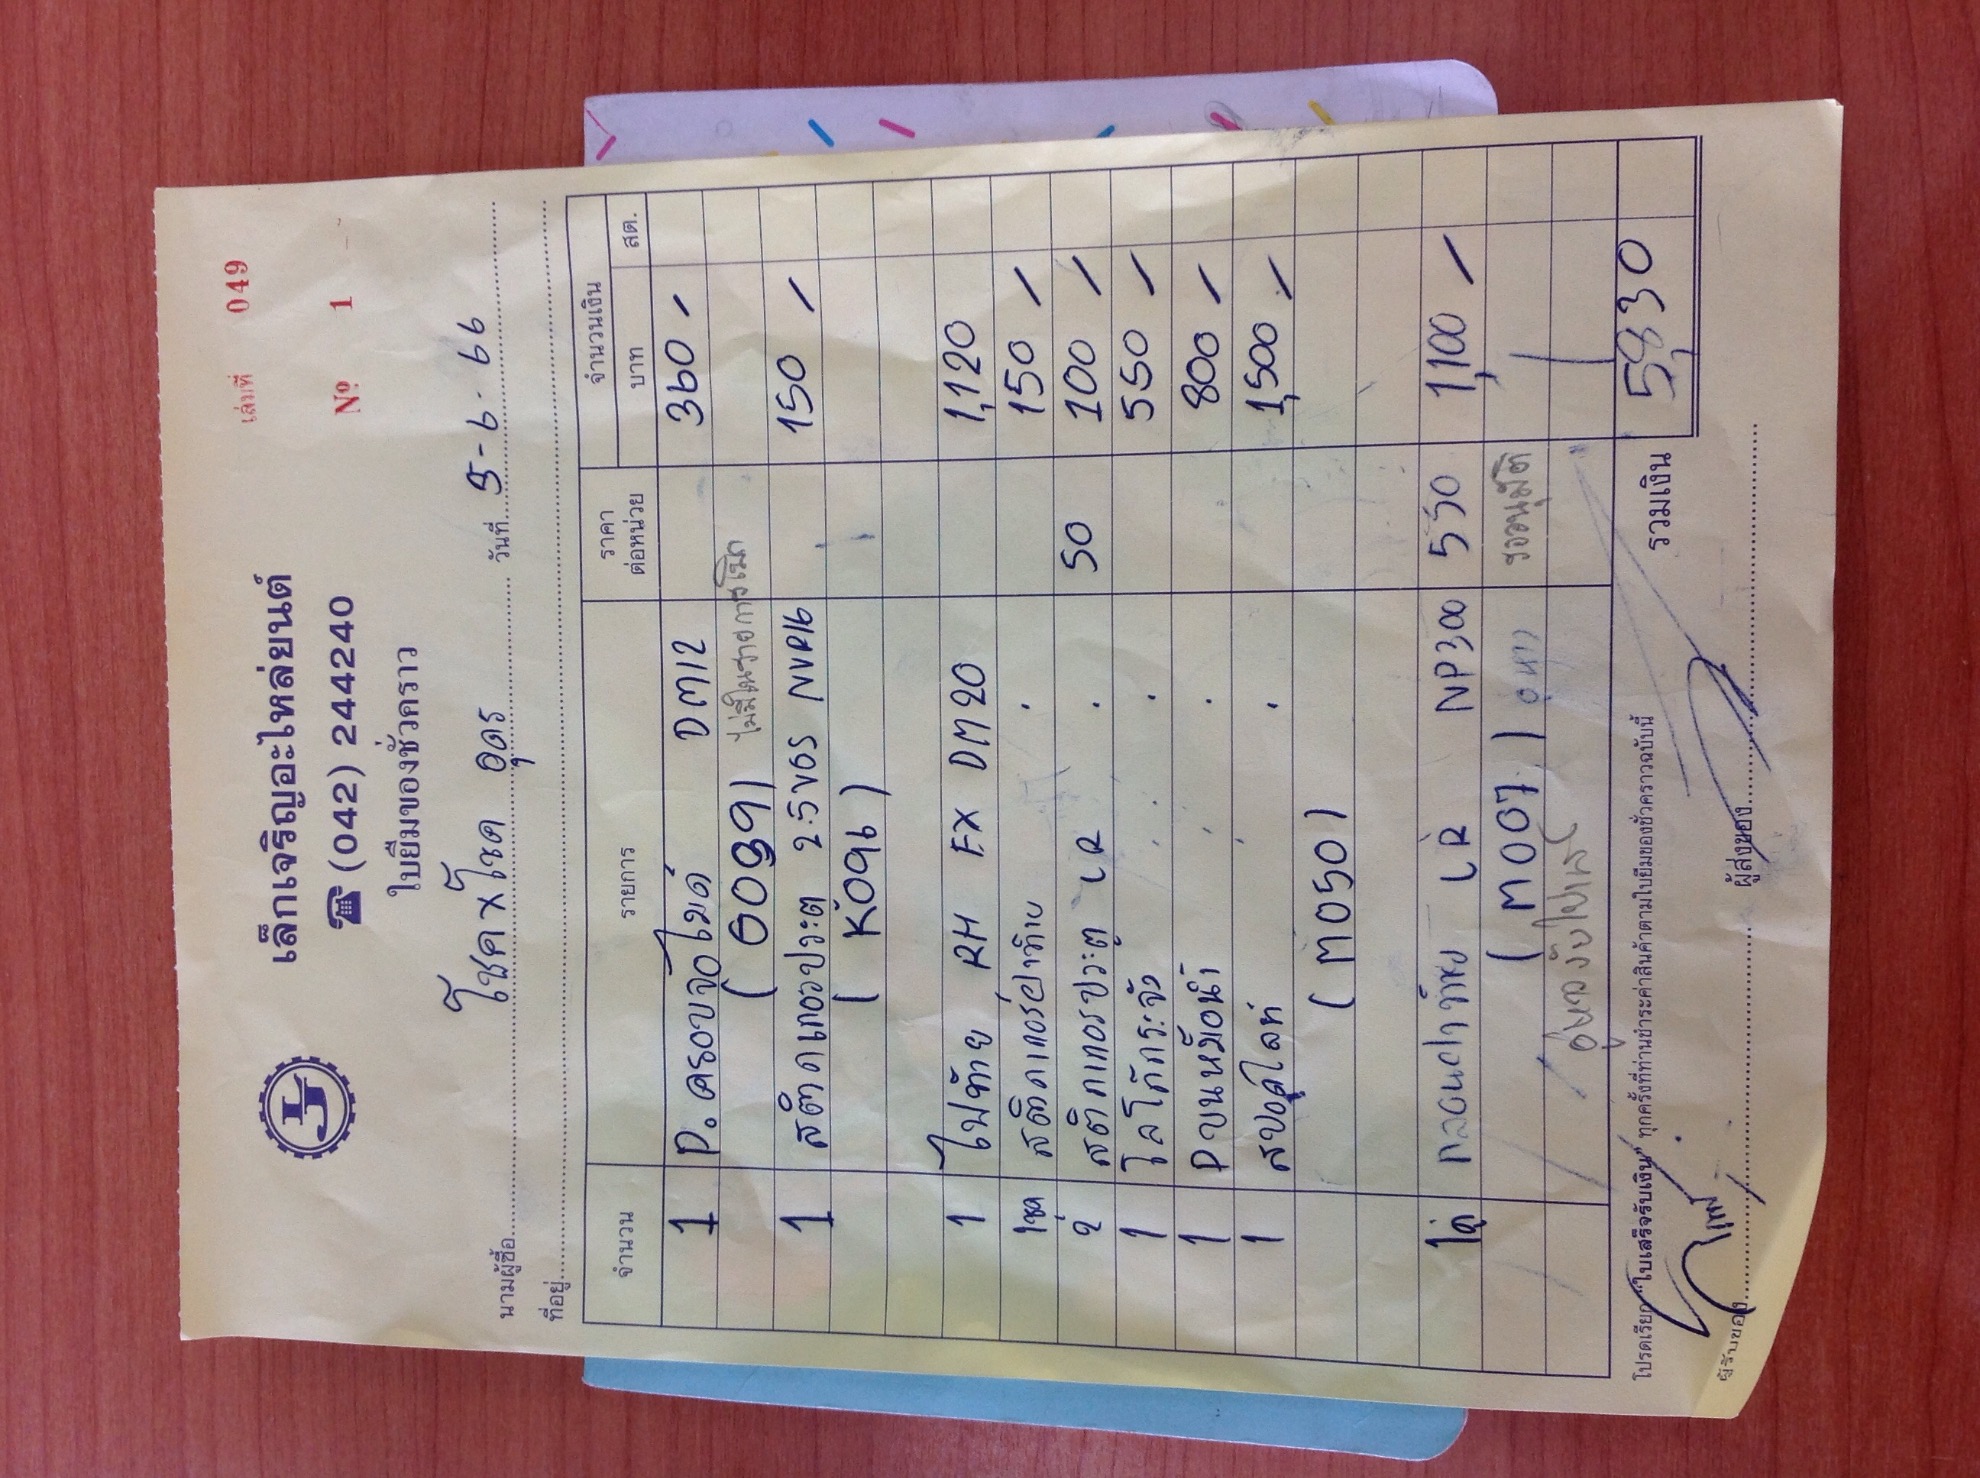 เล่มที่ 049
เล็กเจริญอะไหล่ยนต์
☎ (042) 2444240
№ 1
ใบยืมของชั่วคราว
นามผู้ซื้อ โชค x โชค อุดร วันที่ 5-6-66
ที่อยู่
จำนวน รายการ ราคาต่อหน่วย จำนวนเงิน
บาท สต.
1 P. ครอบจอไมล์ DM12 360 -
ไม่มีในรายการ
1 สติกเกอร์ประตู 2.5VGS NVR16 150 -
(K096)
1 ไฟท้าย RH EX DM20 1,120
1ชุด สติกเกอร์ฝาท้าย . 150 -
2 สติกเกอร์ประตู LR . 50 100 -
1 โลโก้กระจัง . 550 -
1 Pบนหม้อน้ำ . 800 -
1 สปอตไลท์ . 1,500 -
(M050)
1คู่ LR NP300 550 1,100 -
(M007) รออนุมัติ
รวมเงิน 5,830
โปรดเรียก "ใบเสร็จรับเงิน" ทุกครั้งที่ท่านชำระค่าสินค้าตามใบยืมของชั่วคราวฉบับนี้
ผู้รับของ ผู้ส่งของ